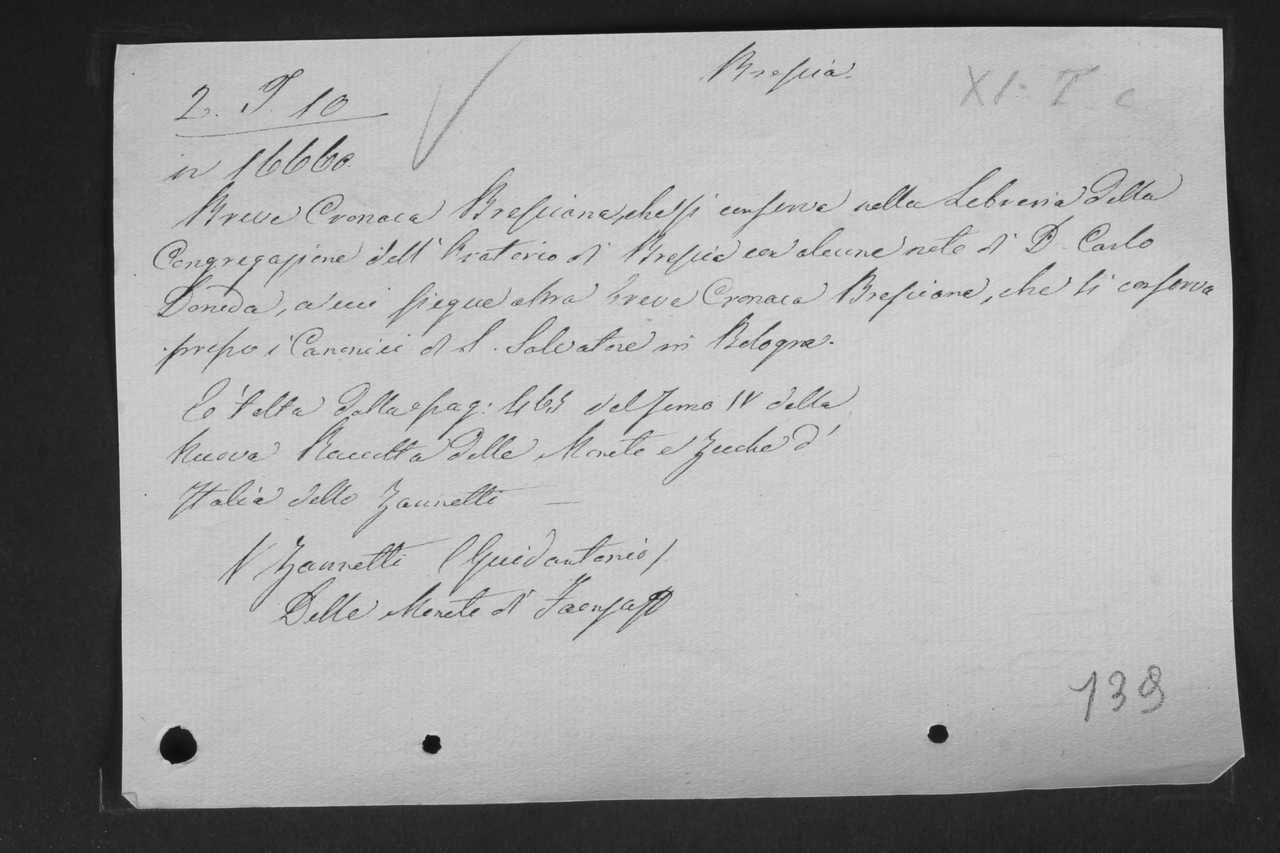 Brescia.
XI. I. c
2. T. 10
in 16660
Breve Cronaca Bresciana, che si conserva nella Libreria della
Congregazione dell' Oratorio di Brescia con alcune note di D. Carlo
Doneda, a cui siegue altra breve Cronaca Bresciana, che si conserva
presso i Canonici di S. Salvatore in Bologna.
È tolta dalla pag: 463 del Tomo IV della
Nuova Raccolta delle Monete e Zecche d'
Italia dello Zannetti —
V Zannetti (Guidantonio)
Delle Monete di Faenza
139